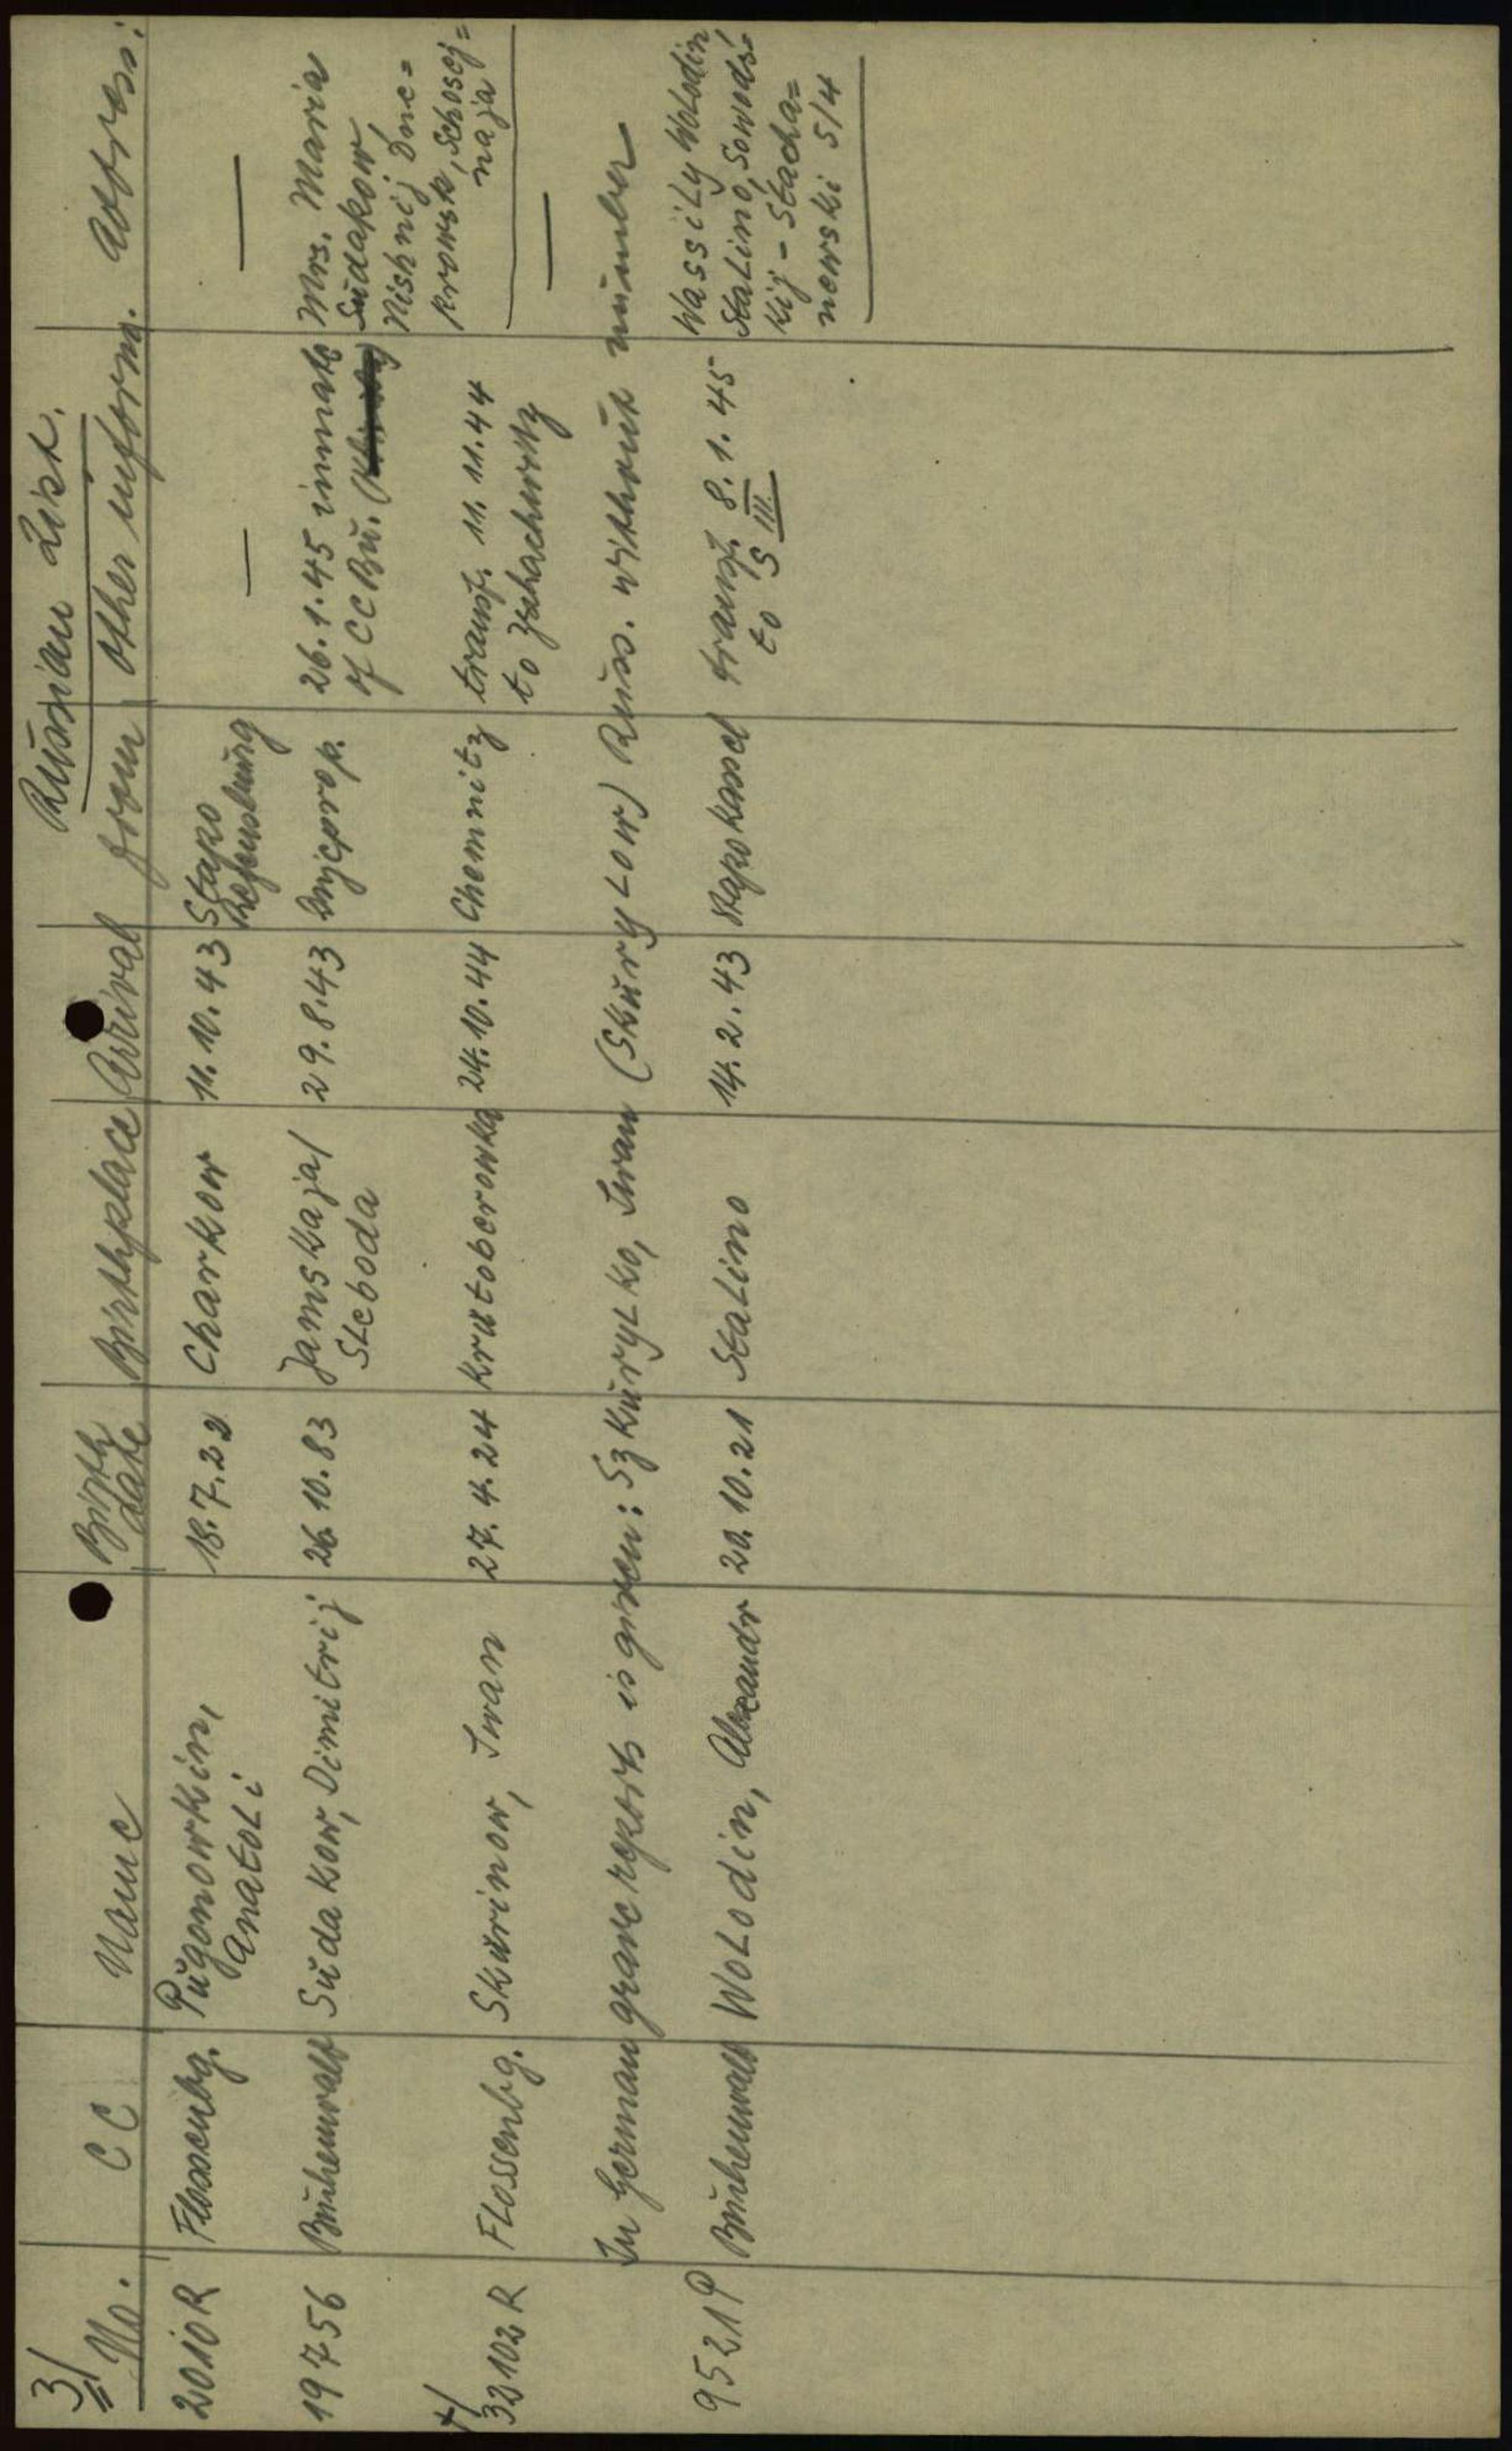 3/
Russian List.
No. CC Name Birth date Birthplace Arrival from other inform. Address:
2010R Flossenbg. Pugonowkin, Anatoli 18.7.22 Charkow 11.10.43 Stapo Regensburg — —
19756 Buchenwald Sudakow, Dimitrij 26.10.83 Jamskaja/ Sleboda 29.8.43 Dnjeprop. 26.1.45 inmate of CC Bu. Mrs. Maria
Sudakow,
Nishnij Dne=
krowsk, Schosej=
naja
+/
32102R Flossenbg. Skurinow, Iwan 27.4.24 Krutoberowka 24.10.44 Chemnitz transf. 11.11.44 to Zschachwitz —
In German grave reports is given: Szkurylko, Iwan (Skurylow) Russ. without number
9521P Buchenwald Wolodin, Alexandr 20.10.21 Stalino 14.2.43 Stapo Kassel transf. 8.1.45 to S III. Wassily Wolodin,
Stalino, Sowods=
kij - Stacha=
newski 5/4